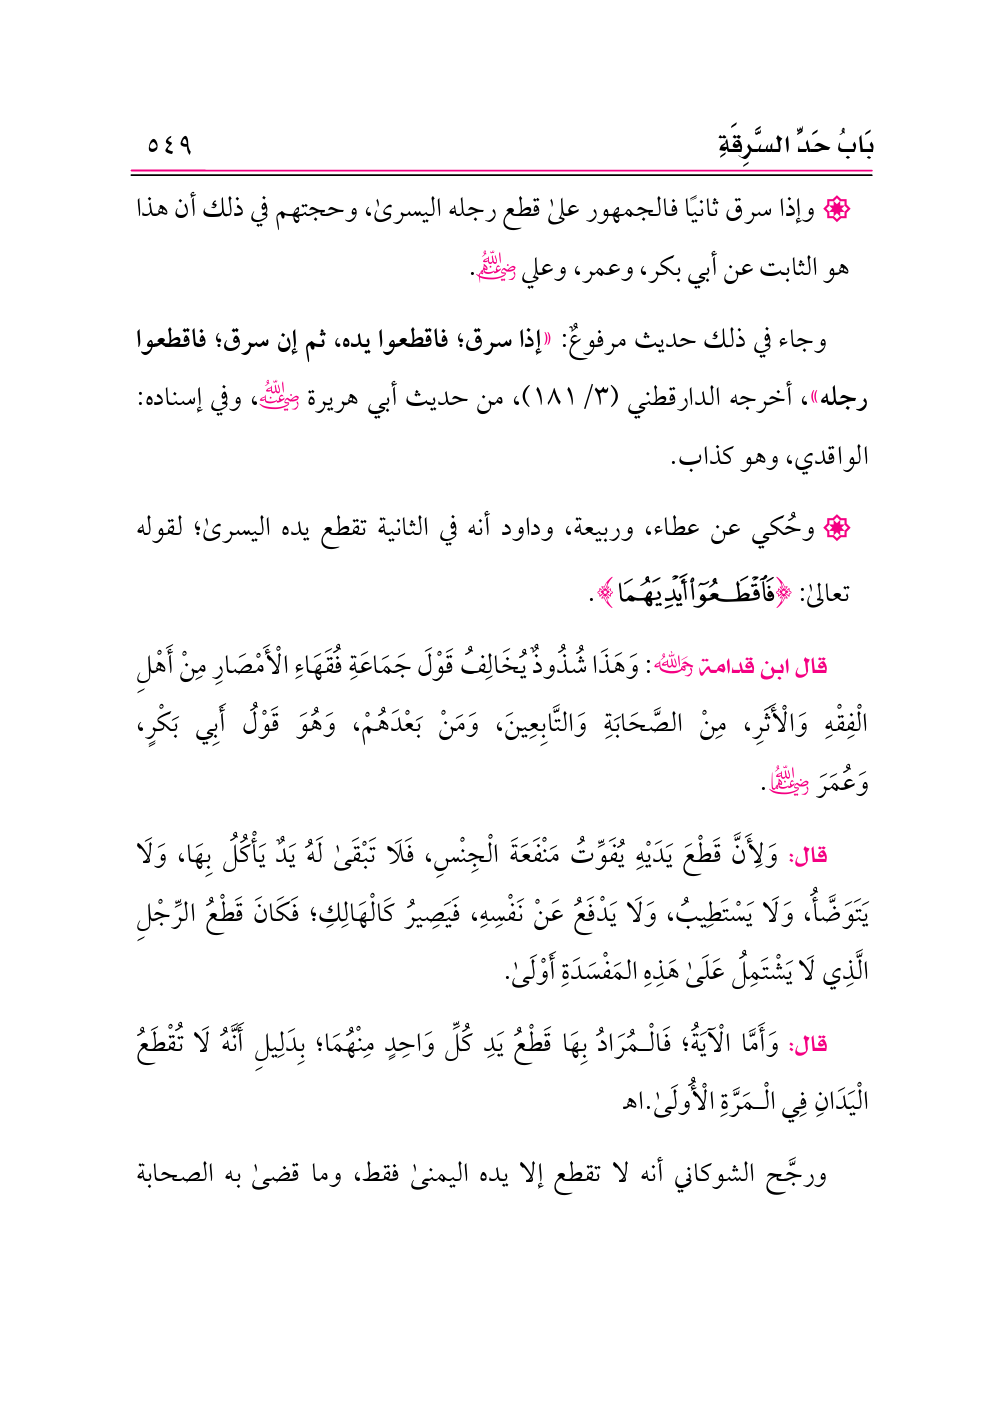 بَابُ حَدِّ السَّرِقَةِ ٥٤٩
وإذا سرق ثانيًا فالجمهور علىٰ قطع رجله اليسرىٰ، وحجتهم في ذلك أن هذا
هو الثابت عن أبي بكر، وعمر، وعلي رضي الله عنهم.
وجاء في ذلك حديث مرفوعٌ: «إذا سرق؛ فاقطعوا يده، ثم إن سرق؛ فاقطعوا
رجله»، أخرجه الدارقطني (٣/ ١٨١)، من حديث أبي هريرة رضي الله عنه، وفي إسناده:
الواقدي، وهو كذاب.
وحُكي عن عطاء، وربيعة، وداود أنه في الثانية تقطع يده اليسرىٰ؛ لقوله
تعالىٰ: ﴿فَٱقْطَعُوٓا۟ أَيْدِيَهُمَا﴾.
قال ابن قدامة رحمه الله: وَهَذَا شُذُوذٌ يُخَالِفُ قَوْلَ جَمَاعَةِ فُقَهَاءِ الْأَمْصَارِ مِنْ أَهْلِ
الْفِقْهِ وَالْأَثَرِ، مِنْ الصَّحَابَةِ وَالتَّابِعِينَ، وَمَنْ بَعْدَهُمْ، وَهُوَ قَوْلُ أَبِي بَكْرٍ،
وَعُمَرَ رضي الله عنهما.
قال: وَلِأَنَّ قَطْعَ يَدَيْهِ يُفَوِّتُ مَنْفَعَةَ الْجِنْسِ، فَلَا تَبْقَىٰ لَهُ يَدٌ يَأْكُلُ بِهَا، وَلَا
يَتَوَضَّأُ، وَلَا يَسْتَطِيبُ، وَلَا يَدْفَعُ عَنْ نَفْسِهِ، فَيَصِيرُ كَالْهَالِكِ؛ فَكَانَ قَطْعُ الرِّجْلِ
الَّذِي لَا يَشْتَمِلُ عَلَىٰ هَذِهِ المَفْسَدَةِ أَوْلَىٰ.
قال: وَأَمَّا الْآيَةُ؛ فَالْـمُرَادُ بِهَا قَطْعُ يَدِ كُلِّ وَاحِدٍ مِنْهُمَا؛ بِدَلِيلِ أَنَّهُ لَا تُقْطَعُ
الْيَدَانِ فِي الْـمَرَّةِ الْأُولَىٰ.اهـ
ورجَّح الشوكاني أنه لا تقطع إلا يده اليمنىٰ فقط، وما قضىٰ به الصحابة